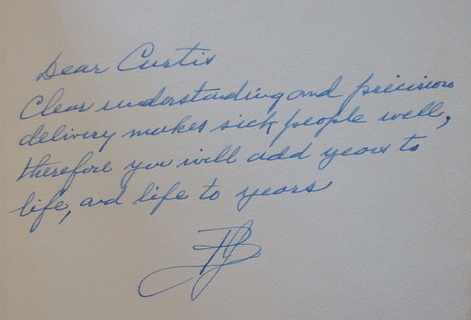 Dear Curtis
Clear understanding and precision
delivery makes sick people well,
therefore you will add years to
life, and life to years